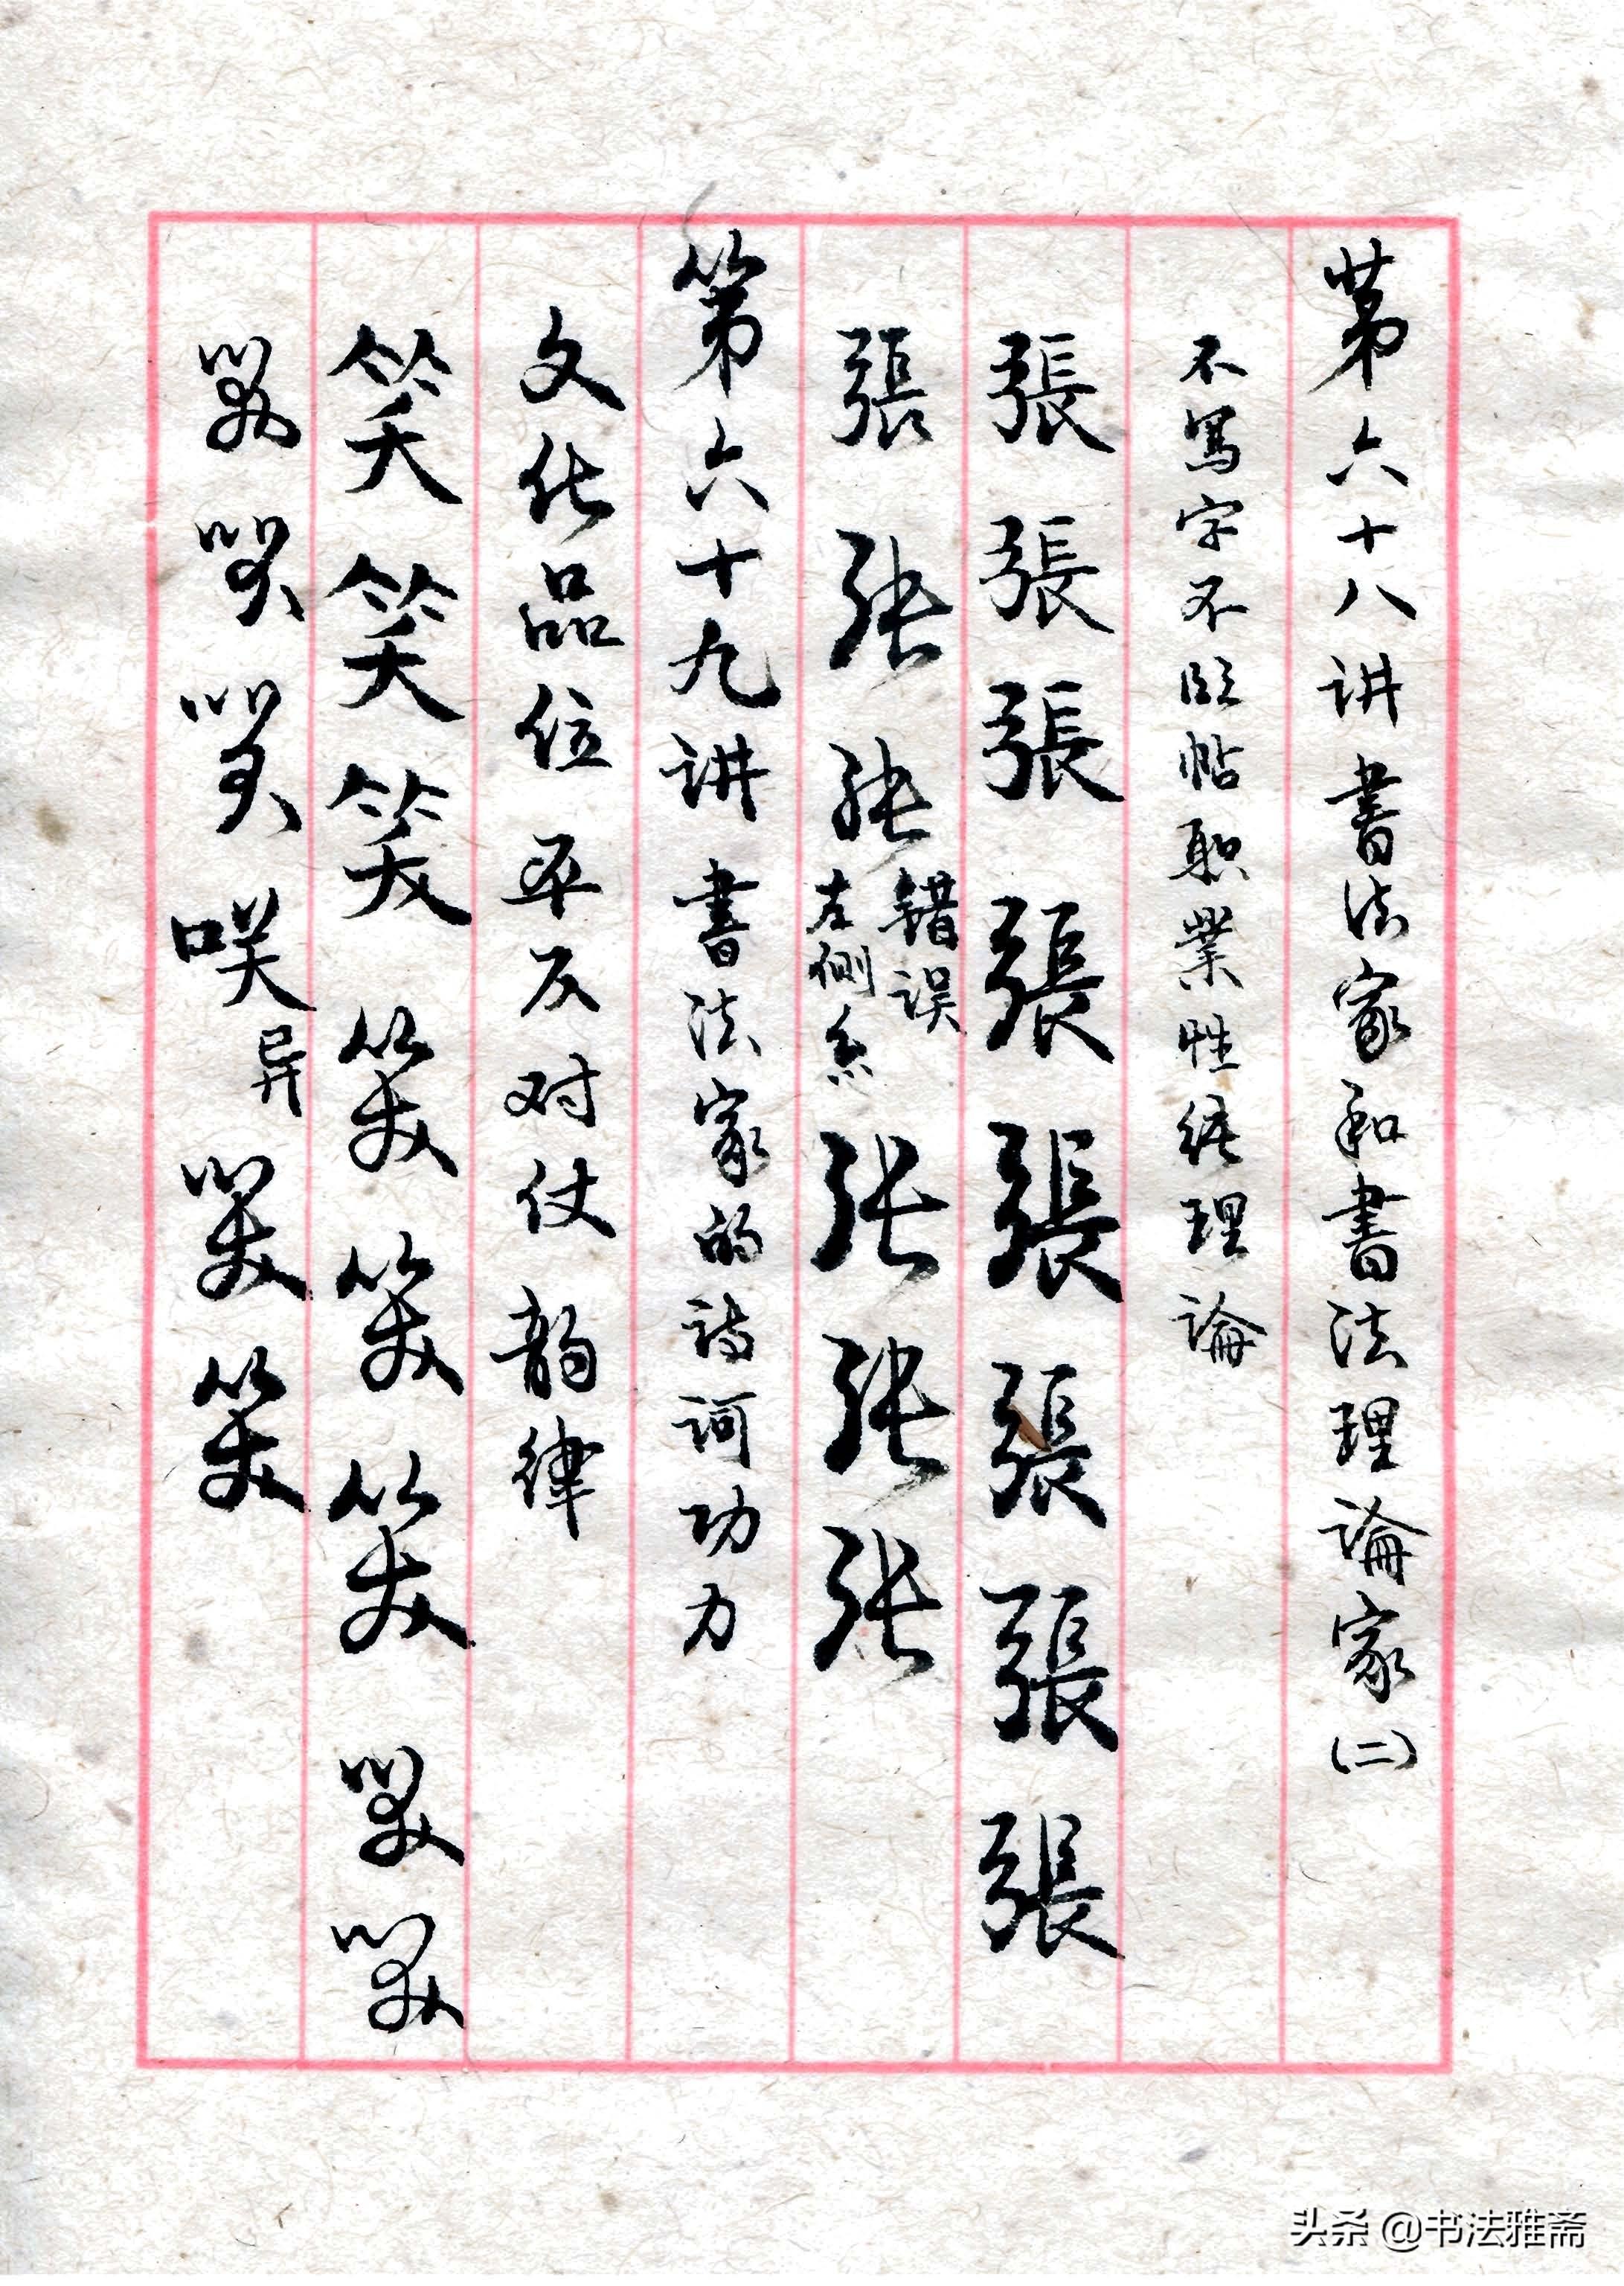 第六十八讲 書法家和書法理論家(二)
不寫字不临帖职業性练理論
張張張張張張張張
張张张错误左侧糸张张张
第六十九讲 書法家的诗词功力
文化品位 平仄对仗 韵律
笑笑笑笑笑笑笑笑
笑笑笑咲异笑笑
头条 @书法雅斋